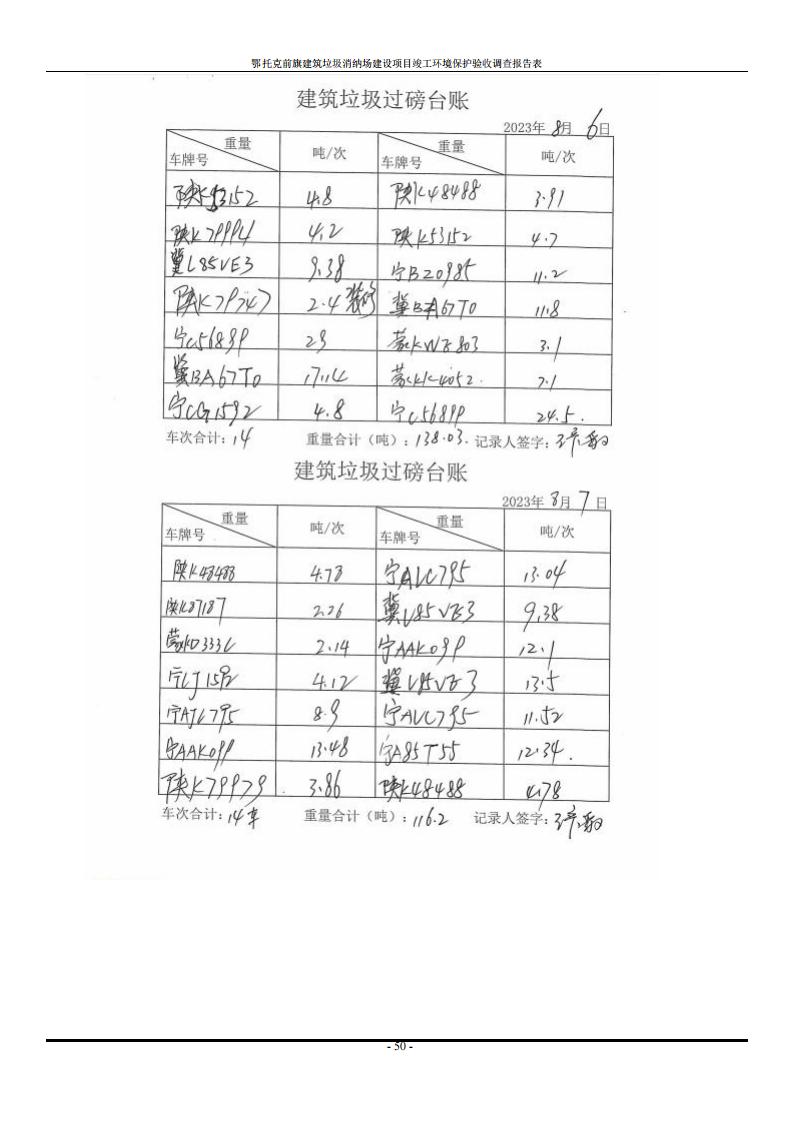 鄂托克前旗建筑垃圾消纳场建设项目竣工环境保护验收调查报告表
建筑垃圾过磅台账
2023年 8月 6日
重量 车牌号 吨/次 重量 车牌号 吨/次
陕K53152 4.8 陕K48488 3.91
陕K79994 4.2 陕K53152 4.7
冀L85VE3 9.38 宁B20985 11.2
陕K79747 2.4 装修 冀BA67T0 11.8
宁C56899 29 蒙KWE803 3.1
冀BA67T0 17.14 4052 7.1
宁CG1592 4.8 宁C56899 24.5.
车次合计：14 重量合计（吨）：138.03. 记录人签字：
建筑垃圾过磅台账
2023年 8月 7日
重量 车牌号 吨/次 重量 车牌号 吨/次
陕K48488 4.78 宁ALC795 13.04
陕K87187 2.26 冀L85VE3 9.38
蒙KD333L 2.14 宁AAK099 12.1
4.12 冀L85VE3 13.5
8.9 宁ALC795 11.52
宁AAK099 13.48 宁A85T55 12.34.
陕K79979 3.86 陕K48488 4.78
车次合计：14车 重量合计（吨）：116.2 记录人签字：
- 50 -